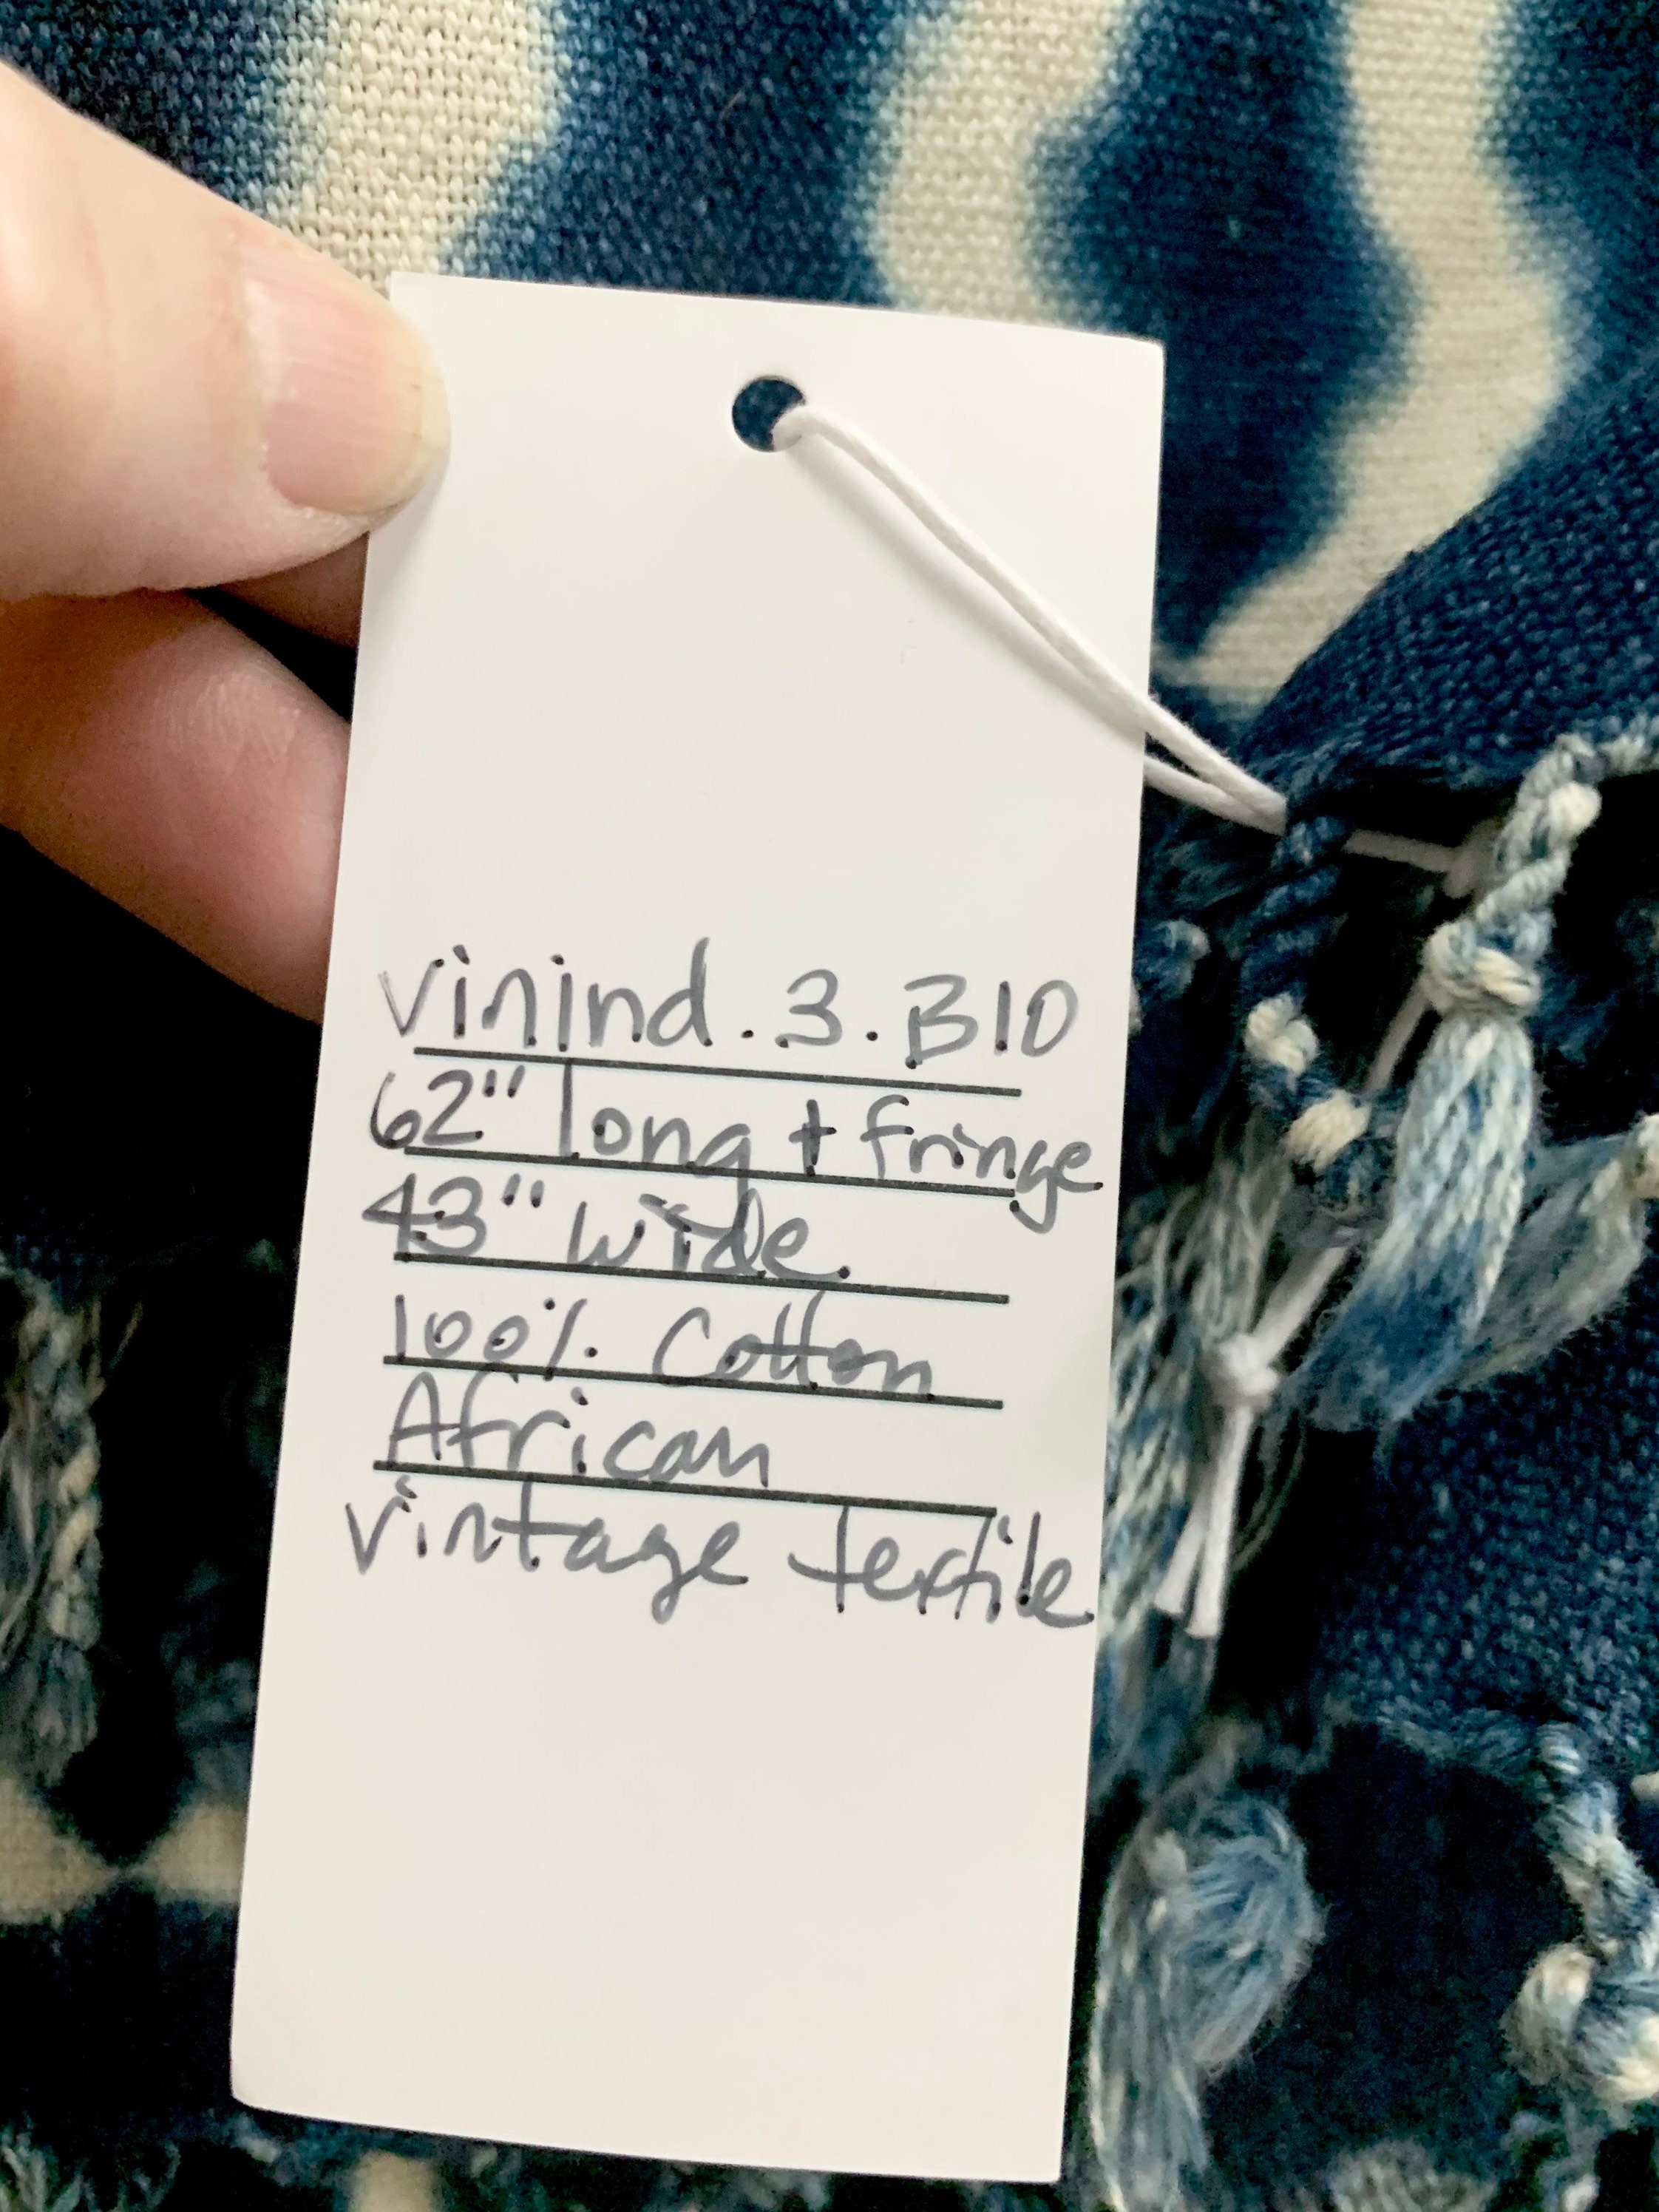 vinind.3.B10
62" long + fringe
43" wide.
100% Cotton
African
vintage textile